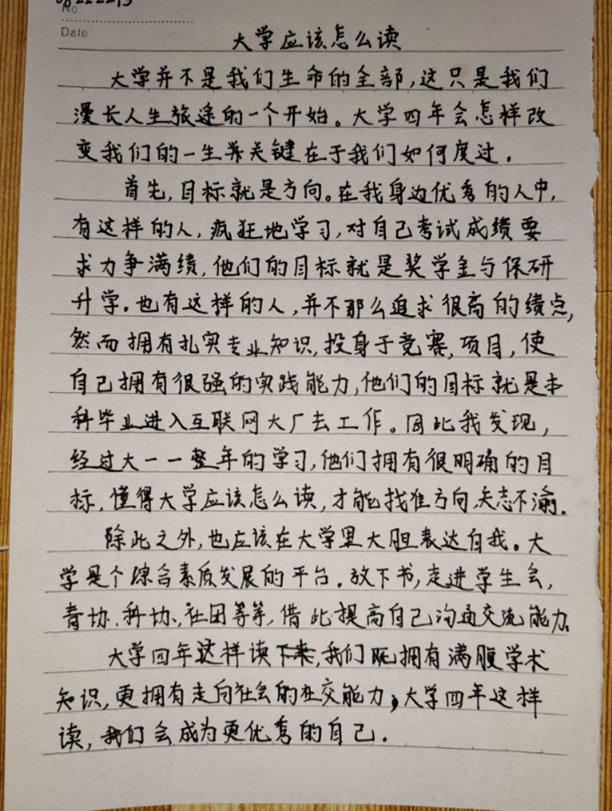 No.
Date
大学应该怎么读
大学并不是我们生命的全部,这只是我们
漫长人生旅途的一个开始。大学四年会怎样改
变我们的一生并关键在于我们如何度过.
首先,目标就是方向。在我身边优秀的人中,
有这样的人,疯狂地学习,对自己考试成绩要
求力争满绩,他们的目标就是奖学金与保研
升学.也有这样的人,并不那么追求很高的绩点,
然而拥有扎实专业知识,投身于竞赛,项目,使
自己拥有很强的实践能力,他们的目标就是本
科毕业进入互联网大厂去工作。因此我发现,
经过大一一整年的学习,他们拥有很明确的目
标,懂得大学应该怎么读,才能找准方向,矢志不渝.
除此之外,也应该在大学里大胆表达自我。大
学是个综合素质发展的平台.放下书,走进学生会,
青协、科协、社团等等,借此提高自己沟通交流能力.
大学四年这样读下来,我们既拥有满腹学术
知识,更拥有走向社会的社交能力,大学四年这样
读,我们会成为更优秀的自己.